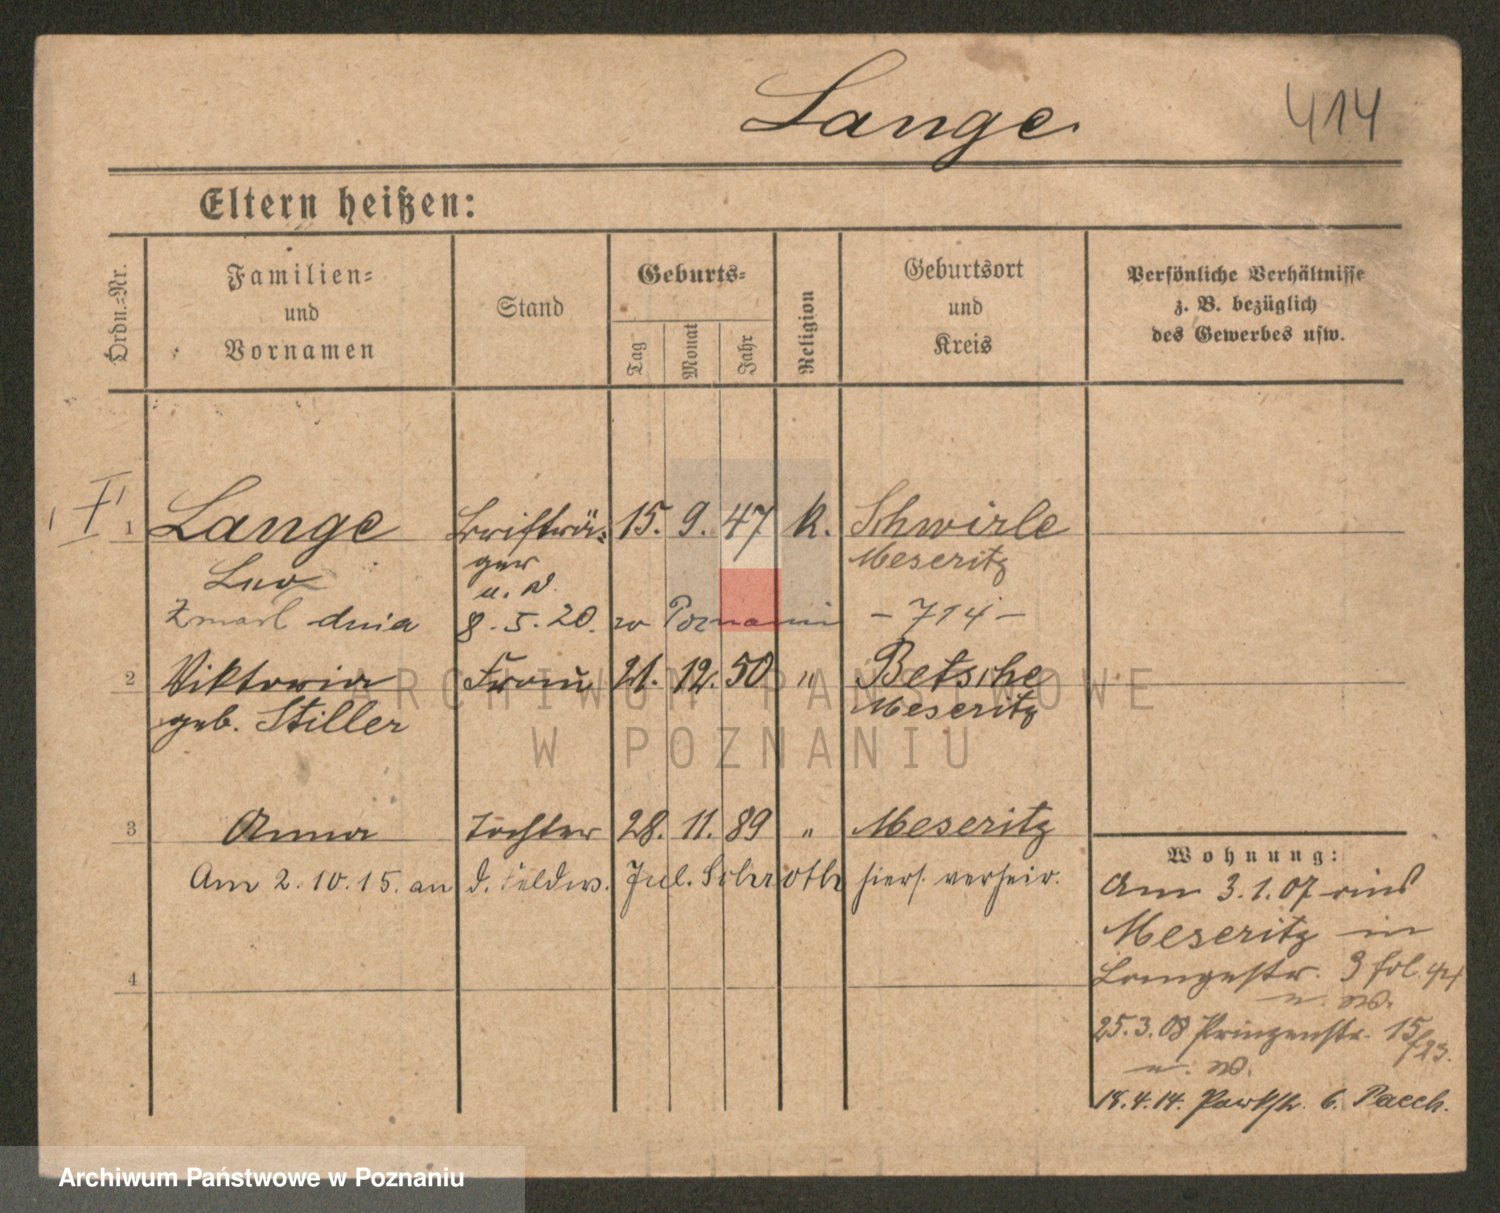 Lange
414
Eltern heißen:
Ordn.-Nr.
Familien-
und
Vornamen
Stand
Geburts-
Tag
Monat
Jahr
Religion
Geburtsort
und
Kreis
Persönliche Verhältnisse
z. B. bezüglich
des Gewerbes usw.
I
1 Lange Briefträ- 15. 9. 47 k. Schwirle
Leo ger Meseritz
u. W.
Zmarł dnia 8. 5. 20. w Poznaniu - 714 -
2 Viktoria Frau 21. 12. 50 " Betsche
geb. Stiller Meseritz
3 Anna Tochter 28. 11. 89 " Meseritz
Am 2. 10. 15. an d. Feldw. Jul. Schroth hiers. verheir.
4
Wohnung:
Am 3. 1. 07 aus
Meseritz in
Langestr. 3 fol.
u. W.
25. 3. 08 Prinzenstr. 15
u. W.
18. 4. 14. Parkstr. 6. Paech.
ARCHIWUM PAŃSTWOWE
W POZNANIU
Archiwum Państwowe w Poznaniu